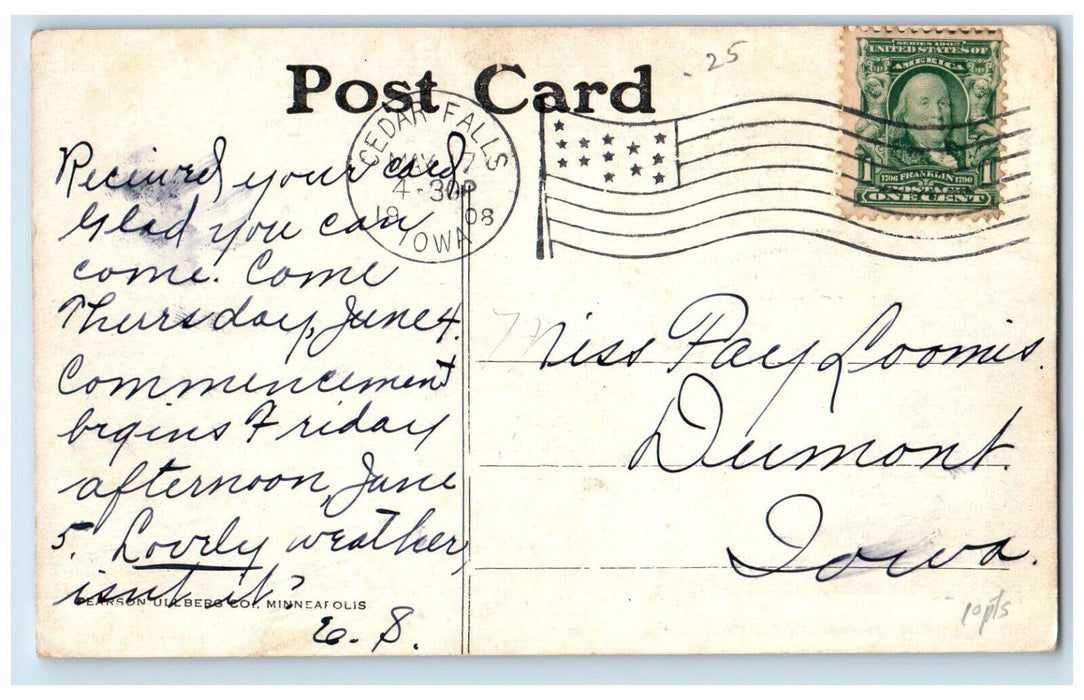 Post Card
.25
SERIES 1902
UNITED STATES OF
AMERICA
1 1
1706 FRANKLIN 1790
POSTAGE
ONE CENT
CEDAR FALLS
MAY 7
4-30P
19 08
IOWA
Received your card
Glad you can
come. Come
Thursday, June 4.
Commencement
begins Friday
afternoon, June
5. Lovely weather,
isn't it?
E. S.
Miss Fay Loomis.
Dumont.
Iowa.
PEARSON ULLBERG CO., MINNEAPOLIS
10pts